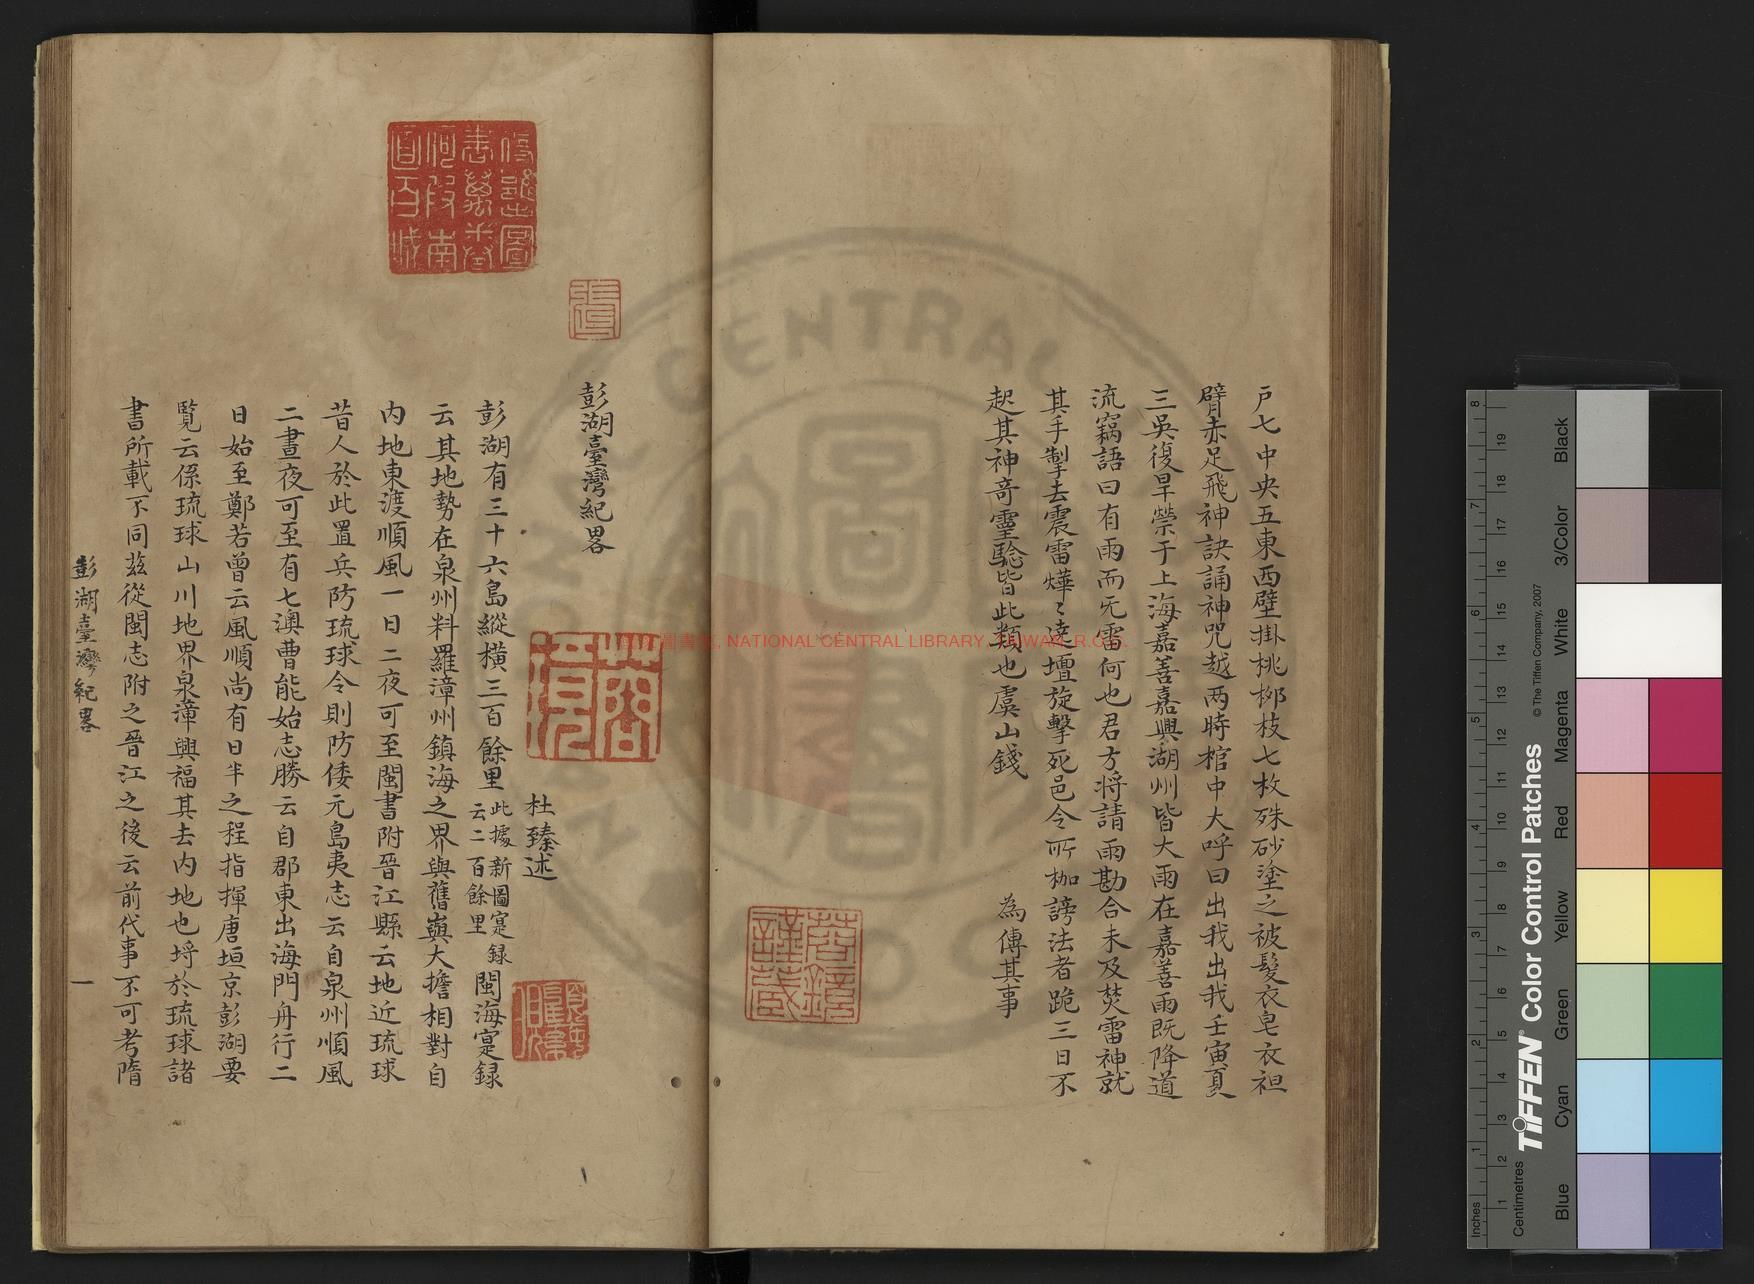 戶七中央五東西壁掛桃柳枝七枚殊砂塗之被髮衣皂衣袒
臂赤足飛神訣誦神咒越两時棺中大呼曰出我出我壬寅夏
三吳復旱禜于上海嘉善嘉興湖州皆大雨在嘉善雨既降道
流竊語曰有雨而无雷何也君方将請雨勘合未及焚雷神就
其手掣去震雷燁〻遶壇旋擊死邑令所枷謗法者跪三日不
起其神奇靈驗皆此類也虞山錢 為傳其事
彭湖臺灣紀畧
杜臻述
彭湖有三十六島縱橫三百餘里此據新圖寔録云二百餘里閩海寔録
云其地勢在泉州料羅漳州鎮海之界與舊嶼大擔相對自
内地東渡順風一日二夜可至閩書附晉江縣云地近琉球
昔人於此置兵防琉球今則防倭元島夷志云自泉州順風
二晝夜可至有七澳曹能始志勝云自郡東出海門舟行二
日始至鄭若曾云風順尚有日半之程指揮唐垣京彭湖要
覧云係琉球山川地界泉漳興福其去内地也埒於琉球諸
書所載不同茲從閩志附之晉江之後云前代事不可考隋
彭湖臺灣紀畧 一
菩鏡謹藏
圖書館, NATIONAL CENTRAL LIBRARY, TAIWAN, R.O.C.
CENTRAL
圖
Inches
Centimetres
TIFFEN® Color Control Patches
© The Tiffen Company, 2007
Blue
Cyan
Green
Yellow
Red
Magenta
White
3/Color
Black